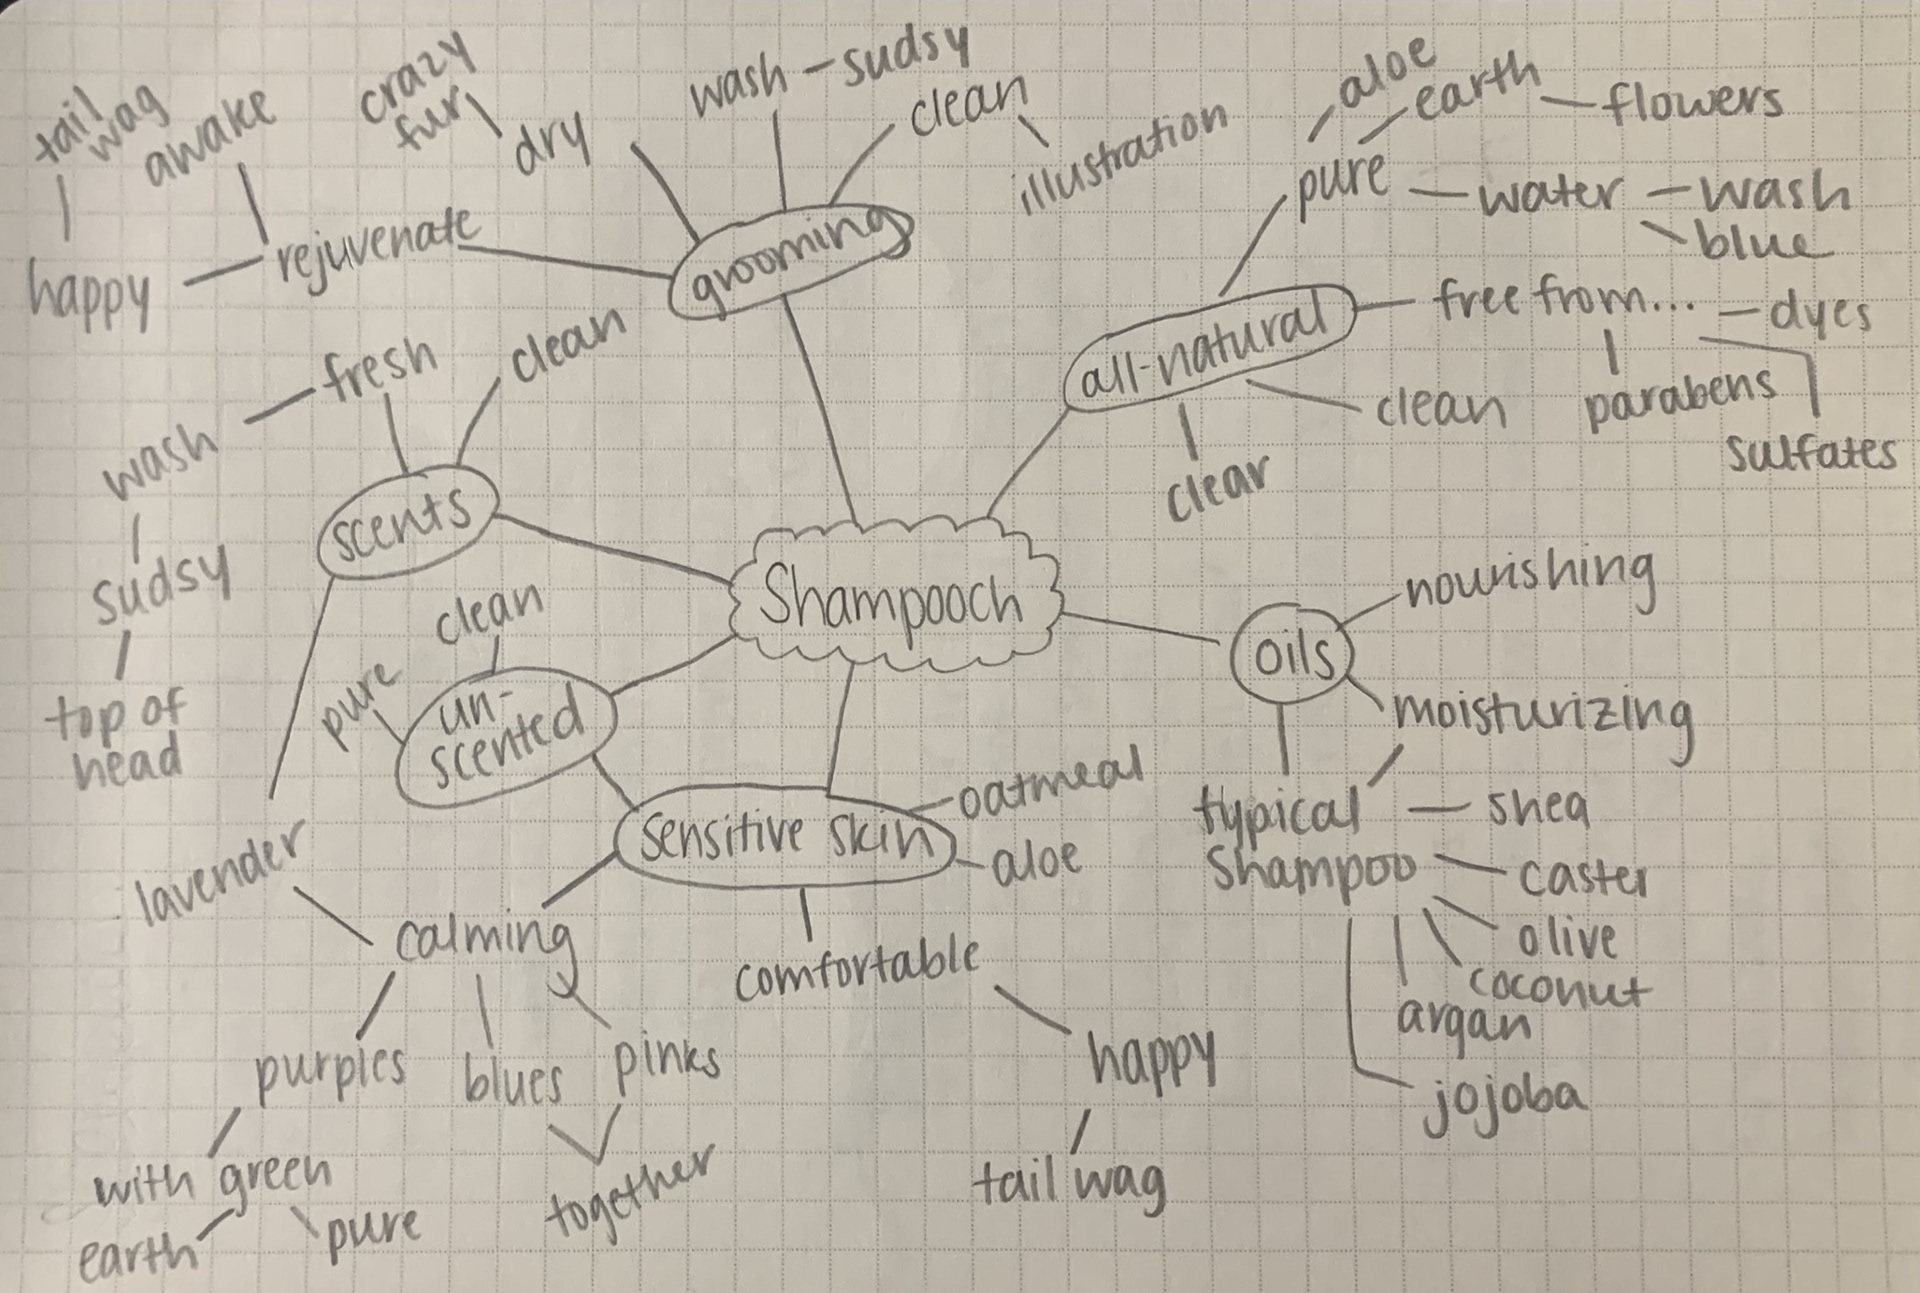 tail
wag
awake
crazy
fur
dry
wash - sudsy
clean
illustration
aloe
earth
flowers
pure
water
wash
blue
happy
rejuvenate
grooming
free from...
dyes
parabens
sulfates
all-natural
clean
clear
fresh
clean
wash
sudsy
top of
head
scents
Shampooch
clean
pure
un-
scented
oils
nourishing
moisturizing
typical
Shampoo
shea
caster
olive
coconut
argan
jojoba
sensitive skin
oatmeal
aloe
lavender
calming
comfortable
purples
blues
pinks
happy
tail wag
with green
earth
pure
together